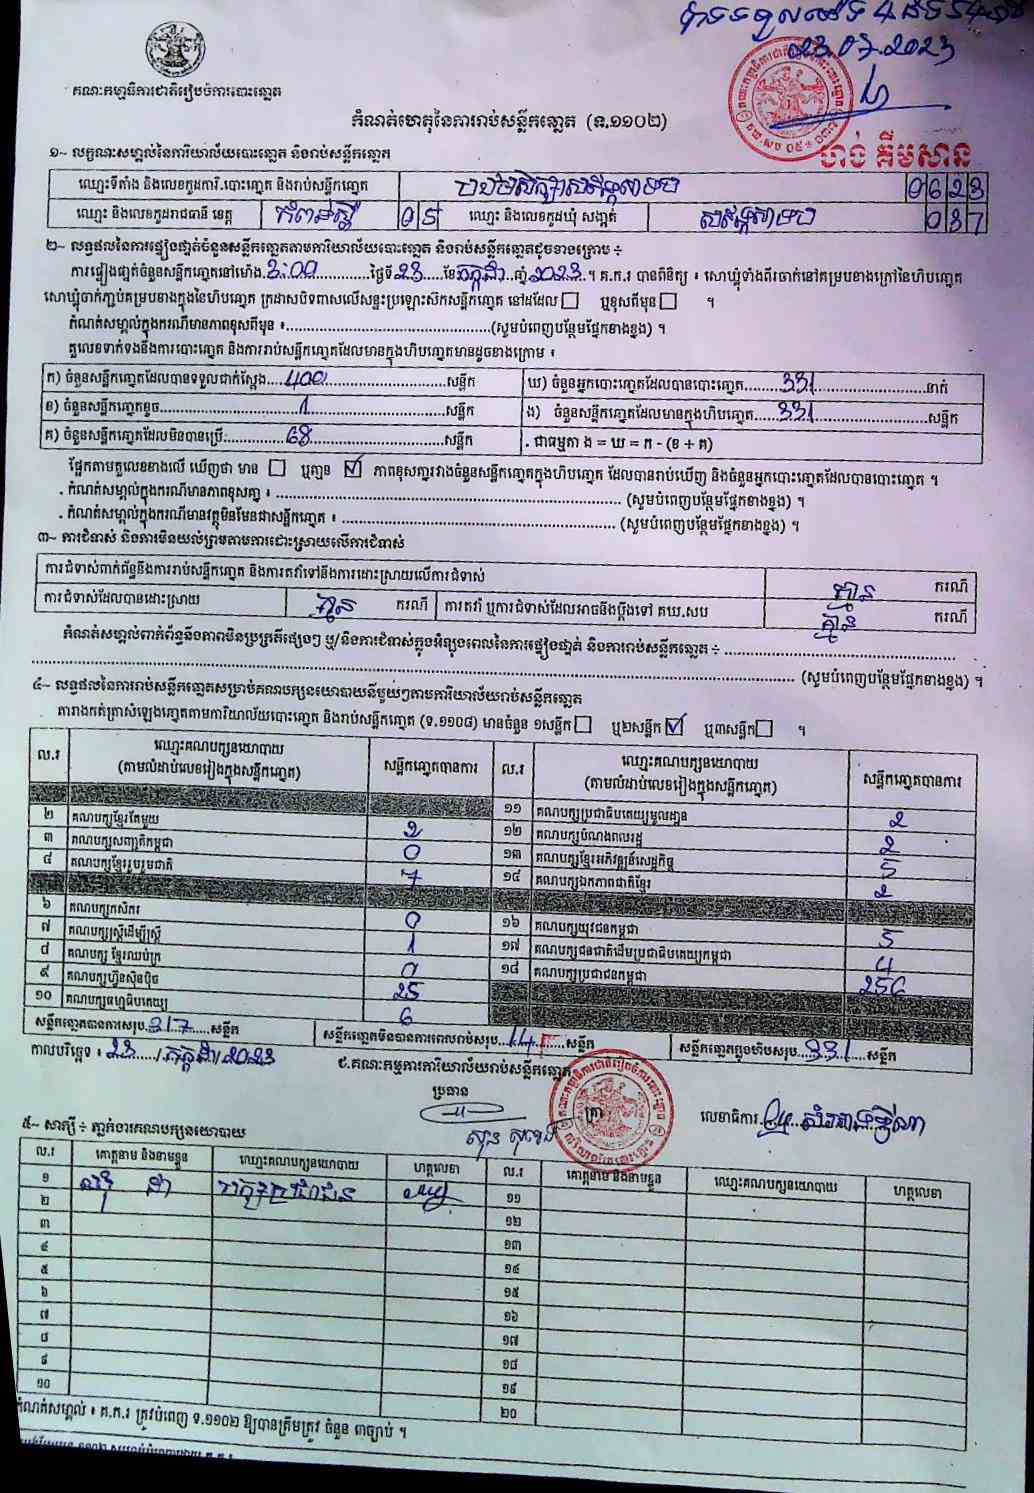 23.07.2023
គណៈកម្មាធិការជាតិរៀបចំការបោះឆ្នោត
កំណត់ហេតុនៃការរាប់សន្លឹកឆ្នោត (ទ.១១០២)
ហង់ គឹមសាន
១~ លក្ខណៈសម្គាល់នៃការិយាល័យបោះឆ្នោត និងរាប់សន្លឹកឆ្នោត
ឈ្មោះទីតាំង និងលេខកូដការិ.បោះឆ្នោត និងរាប់សន្លឹកឆ្នោត 0623
ឈ្មោះ និងលេខកូដរាជធានី ខេត្ត កំពង់ស្ពឺ 05 ឈ្មោះ និងលេខកូដឃុំ សង្កាត់ 037
២~ លទ្ធផលនៃការផ្ទៀងផ្ទាត់ចំនួនសន្លឹកឆ្នោតតាមការិយាល័យបោះឆ្នោត និងរាប់សន្លឹកឆ្នោតដូចខាងក្រោម ÷
ការផ្ទៀងផ្ទាត់ចំនួនសន្លឹកឆ្នោតនៅម៉ោង.3:00.............ថ្ងៃទី23.....ខែកក្កដា..ឆ្នាំ2023.។ គ.ក.រ បានពិនិត្យ ៖ សោឃ្មុំទាំងពីរចាក់នៅគម្របខាងក្រៅនៃហិបឆ្នោត
សោឃ្មុំចាក់ភ្ជាប់គម្របខាងក្នុងនៃហិបឆ្នោត ក្រដាសបិទពាសលើសន្ទះប្រឡោះស៊កសន្លឹកឆ្នោត នៅដដែល ☐ ឬខុសពីមុន ☐ ។
កំណត់សម្គាល់ក្នុងករណីមានភាពខុសពីមុន ៖..................................................(សូមបំពេញបន្ថែមផ្នែកខាងខ្នង) ។
តួលេខទាក់ទងនឹងការបោះឆ្នោត និងការរាប់សន្លឹកឆ្នោតដែលមានក្នុងហិបឆ្នោតមានដូចខាងក្រោម ៖
ក) ចំនួនសន្លឹកឆ្នោតដែលបានទទួលជាក់ស្តែង....400..............................សន្លឹក ឃ) ចំនួនអ្នកបោះឆ្នោតដែលបានបោះឆ្នោត........331..........................នាក់
ខ) ចំនួនសន្លឹកឆ្នោតខូច..............................1..............................សន្លឹក ង) ចំនួនសន្លឹកឆ្នោតដែលមានក្នុងហិបឆ្នោត......331..........................សន្លឹក
គ) ចំនួនសន្លឹកឆ្នោតដែលមិនបានប្រើ:..............68..............................សន្លឹក . ជាធម្មតា ង = ឃ = ក - (ខ + គ)
ផ្អែកតាមតួលេខខាងលើ ឃើញថា មាន ☐ ឬគ្មាន ☑ ភាពខុសគ្នារវាងចំនួនសន្លឹកឆ្នោតក្នុងហិបឆ្នោត ដែលបានរាប់ឃើញ និងចំនួនអ្នកបោះឆ្នោតដែលបានបោះឆ្នោត ។
. កំណត់សម្គាល់ក្នុងករណីមានភាពខុសគ្នា ៖ .................................................. (សូមបំពេញបន្ថែមផ្នែកខាងខ្នង) ។
. កំណត់សម្គាល់ក្នុងករណីមានវត្ថុមិនមែនជាសន្លឹកឆ្នោត ៖ .................................................. (សូមបំពេញបន្ថែមផ្នែកខាងខ្នង) ។
៣~ ការជំទាស់ និងការមិនយល់ព្រមតាមការដោះស្រាយលើការជំទាស់
ការជំទាស់ពាក់ព័ន្ធនឹងការរាប់សន្លឹកឆ្នោត និងការតវ៉ាទៅនឹងការដោះស្រាយលើការជំទាស់ គ្មាន ករណី
ការជំទាស់ដែលបានដោះស្រាយ គ្មាន ករណី ការតវ៉ា ឬការជំទាស់ដែលអាចនឹងប្តឹងទៅ គឃ.សប គ្មាន ករណី
កំណត់សម្គាល់ពាក់ព័ន្ធនឹងភាពមិនប្រក្រតីផ្សេងៗ ឬ/និងការជំទាស់ក្នុងអំឡុងពេលនៃការផ្ទៀងផ្ទាត់ និងការរាប់សន្លឹកឆ្នោត ÷ ..................................................
.................................................. (សូមបំពេញបន្ថែមផ្នែកខាងខ្នង) ។
៤~ លទ្ធផលនៃការរាប់សន្លឹកឆ្នោតសម្រាប់គណបក្សនយោបាយនីមួយៗតាមការិយាល័យរាប់សន្លឹកឆ្នោត
តារាងកត់ត្រាសំឡេងឆ្នោតតាមការិយាល័យបោះឆ្នោត និងរាប់សន្លឹកឆ្នោត (ទ.១១០៨) មានចំនួន ១សន្លឹក ☐ ឬ២សន្លឹក ☑ ឬ៣សន្លឹក ☐ ។
ល.រ ឈ្មោះគណបក្សនយោបាយ (តាមលំដាប់លេខរៀងក្នុងសន្លឹកឆ្នោត) សន្លឹកឆ្នោតបានការ ល.រ ឈ្មោះគណបក្សនយោបាយ (តាមលំដាប់លេខរៀងក្នុងសន្លឹកឆ្នោត) សន្លឹកឆ្នោតបានការ
២ គណបក្សខ្មែរតែមួយ 2 ១១ គណបក្សប្រជាធិបតេយ្យមូលដ្ឋាន 2
៣ គណបក្សសញ្ជាតិកម្ពុជា 0 ១២ គណបក្សបំណងពលរដ្ឋ 2
៤ គណបក្សខ្មែររួបរួមជាតិ 7 ១៣ គណបក្សខ្មែរអភិវឌ្ឍន៍សេដ្ឋកិច្ច 5
១៤ គណបក្សឯកភាពជាតិខ្មែរ 2
៦ គណបក្សកសិករ 0 ១៦ គណបក្សយុវជនកម្ពុជា 5
៧ គណបក្សស្ត្រីដើម្បីស្ត្រី 1 ១៧ គណបក្សជនជាតិដើមប្រជាធិបតេយ្យកម្ពុជា 4
៨ គណបក្ស ខ្មែរឈប់ក្រ 0 ១៨ គណបក្សប្រជាជនកម្ពុជា 256
៩ គណបក្សហ៊្វុនស៊ិនប៉ិច 25
១០ គណបក្សធម្មាធិបតេយ្យ 6
សន្លឹកឆ្នោតបានការសរុប.317.......សន្លឹក សន្លឹកឆ្នោតមិនបានការពេលរាប់សរុប..14........សន្លឹក សន្លឹកឆ្នោតក្នុងហិបសរុប..331....សន្លឹក
កាលបរិច្ឆេទ ៖ 23....../កក្កដា/2023 ជ.គណៈកម្មការការិយាល័យរាប់សន្លឹកឆ្នោត
ប្រធាន ត្រា លេខាធិការ
៥~ សាក្សី ÷ ភ្នាក់ងារគណបក្សនយោបាយ
ល.រ គោត្តនាម និងនាមខ្លួន ឈ្មោះគណបក្សនយោបាយ ហត្ថលេខា ល.រ គោត្តនាម និងនាមខ្លួន ឈ្មោះគណបក្សនយោបាយ ហត្ថលេខា
១ បក្សប្រជាជន ១១
២ ១២
៣ ១៣
៤ ១៤
៥ ១៥
៦ ១៦
៧ ១៧
៨ ១៨
៩ ១៩
១០ ២០
កំណត់សម្គាល់ ៖ គ.ក.រ ត្រូវបំពេញ ទ.១១០២ ឱ្យបានត្រឹមត្រូវ ចំនួន ៣ច្បាប់ ។